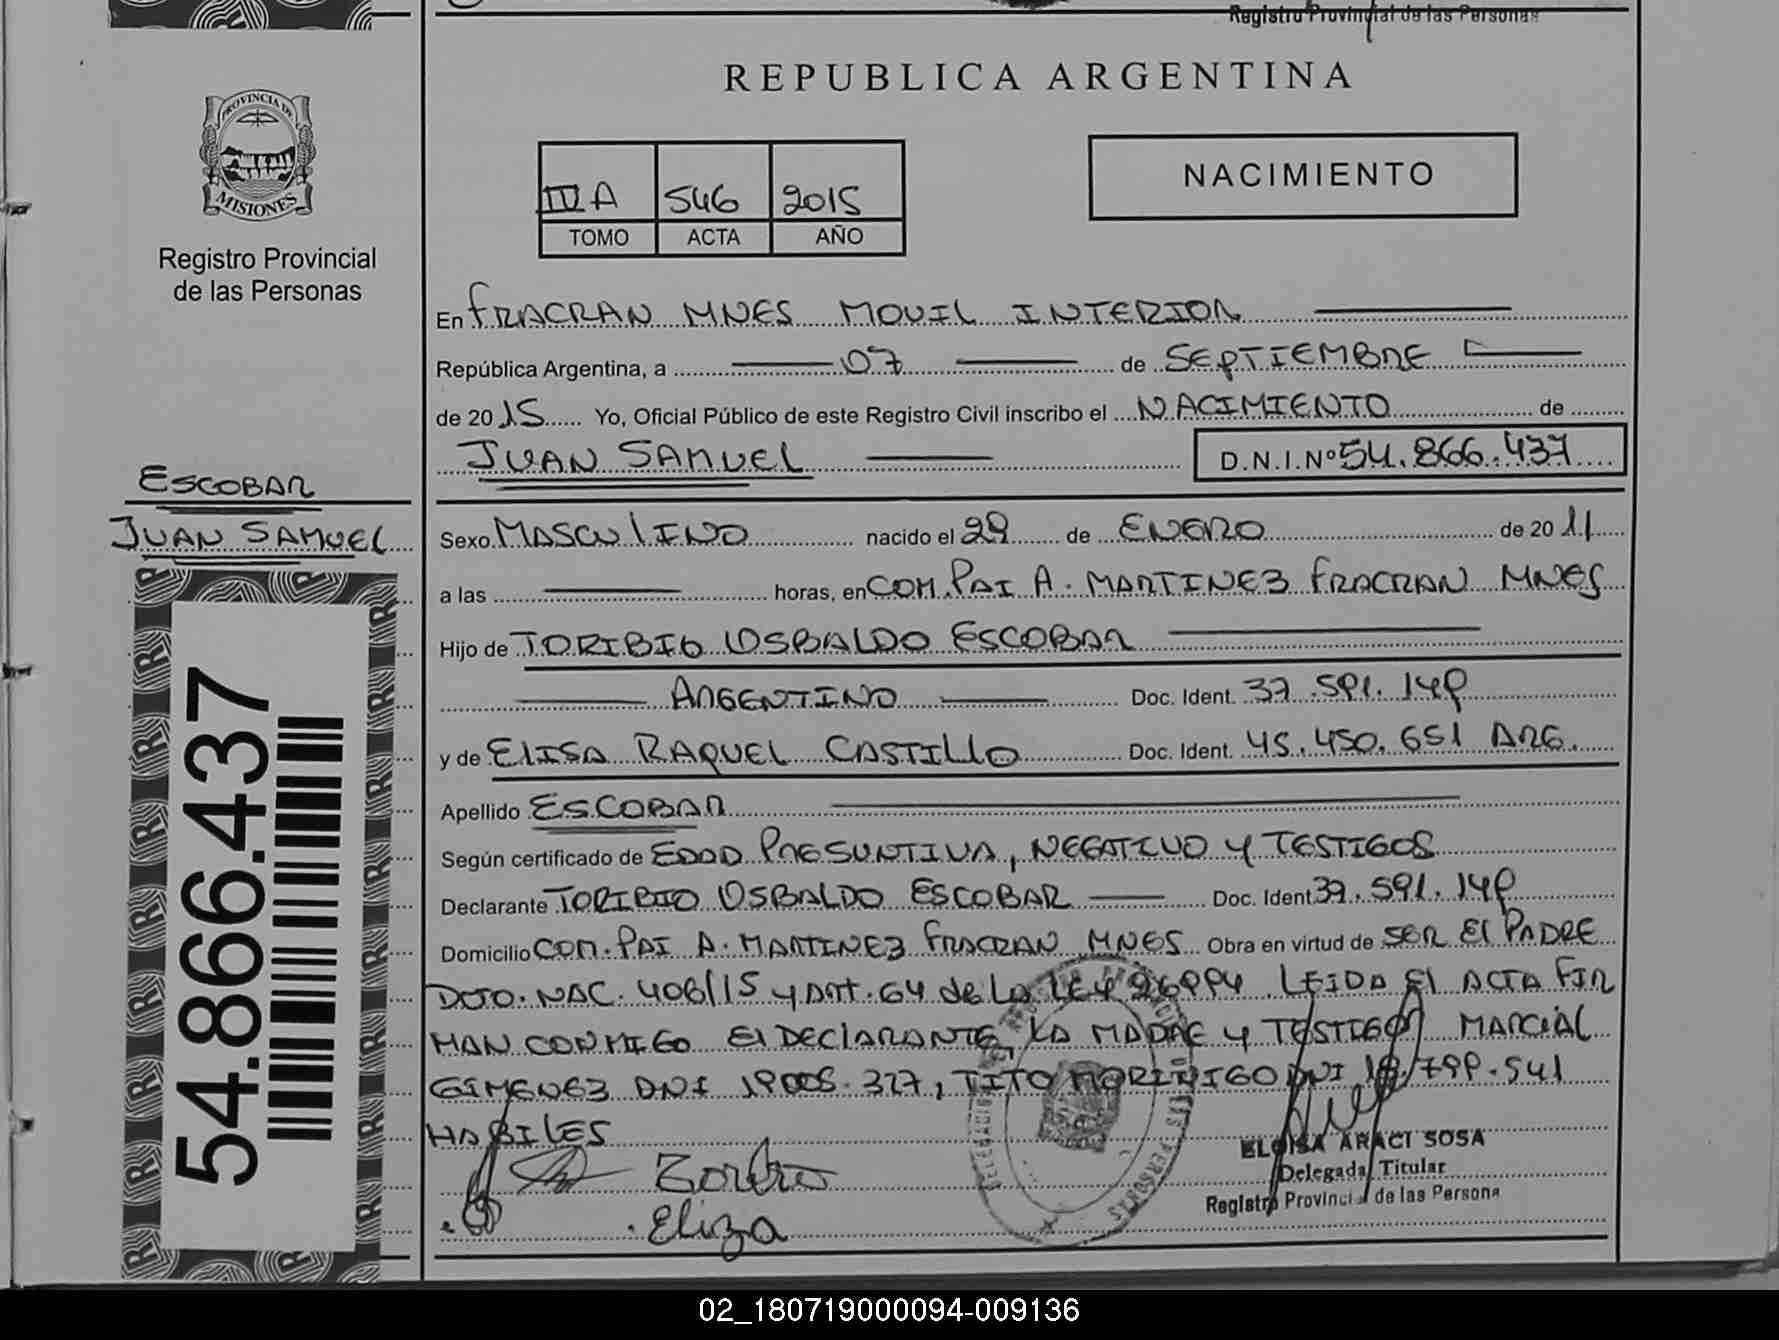 Registro Provincial de las Personas
REPUBLICA ARGENTINA
PROVINCIA DE
MISIONES
Registro Provincial
de las Personas
IVA 546 2015
TOMO ACTA AÑO
NACIMIENTO
En FRACRAN MNES MOVIL INTERIOR
República Argentina, a 07 de SEPTIEMBRE
de 2015 Yo, Oficial Público de este Registro Civil inscribo el NACIMIENTO de
JUAN SAMUEL D.N.I.Nº 54.866.437
ESCOBAR
JUAN SAMUEL
54.866.437
Sexo MASCULINO nacido el 29 de ENERO de 2011
a las horas, en COM. PAI A. MARTINEZ FRACRAN MNES
Hijo de TORIBIO OSBALDO ESCOBAR
ARGENTINO Doc. Ident. 37.591.149
y de ELISA RAQUEL CASTILLO Doc. Ident. 45.450.651 ARG.
Apellido ESCOBAR
Según certificado de EDAD PRESUNTIVA, NEGATIVO Y TESTIGOS
Declarante TORIBIO OSBALDO ESCOBAR Doc. Ident 37.591.149
Domicilio COM. PAI A. MARTINEZ FRACRAN MNES Obra en virtud de SER El PADRE
DCTO. NAC. 406/15 y ART. 64 de LA LEY 26994 LEIDA El ACTA FIR
MAN CONMIGO El DECLARANTE, LA MADRE Y TESTIGOS MARCIAL
GIMENEZ DNI 19005.327, TITO MORINIGO DNI 18.799.541
HABILES
ELOISA ARACI SOSA
Delegada Titular
Registro Provincial de las Persona
Eliza
02_180719000094-009136